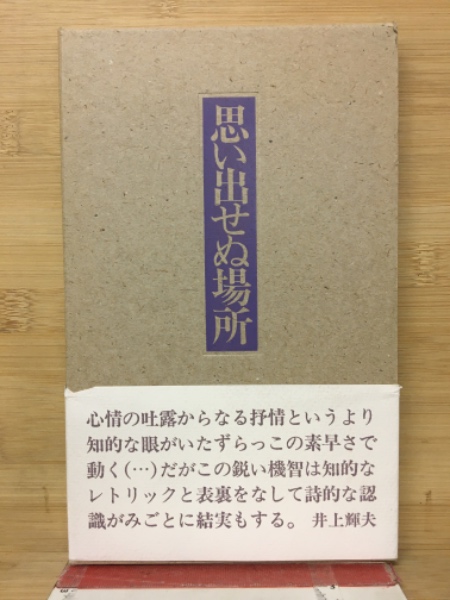 思い出せぬ場所
心情の吐露からなる抒情というより
知的な眼がいたずらっこの素早さで
動く(…)だがこの鋭い機智は知的な
レトリックと表裏をなして詩的な認
識がみごとに結実もする。 井上輝夫